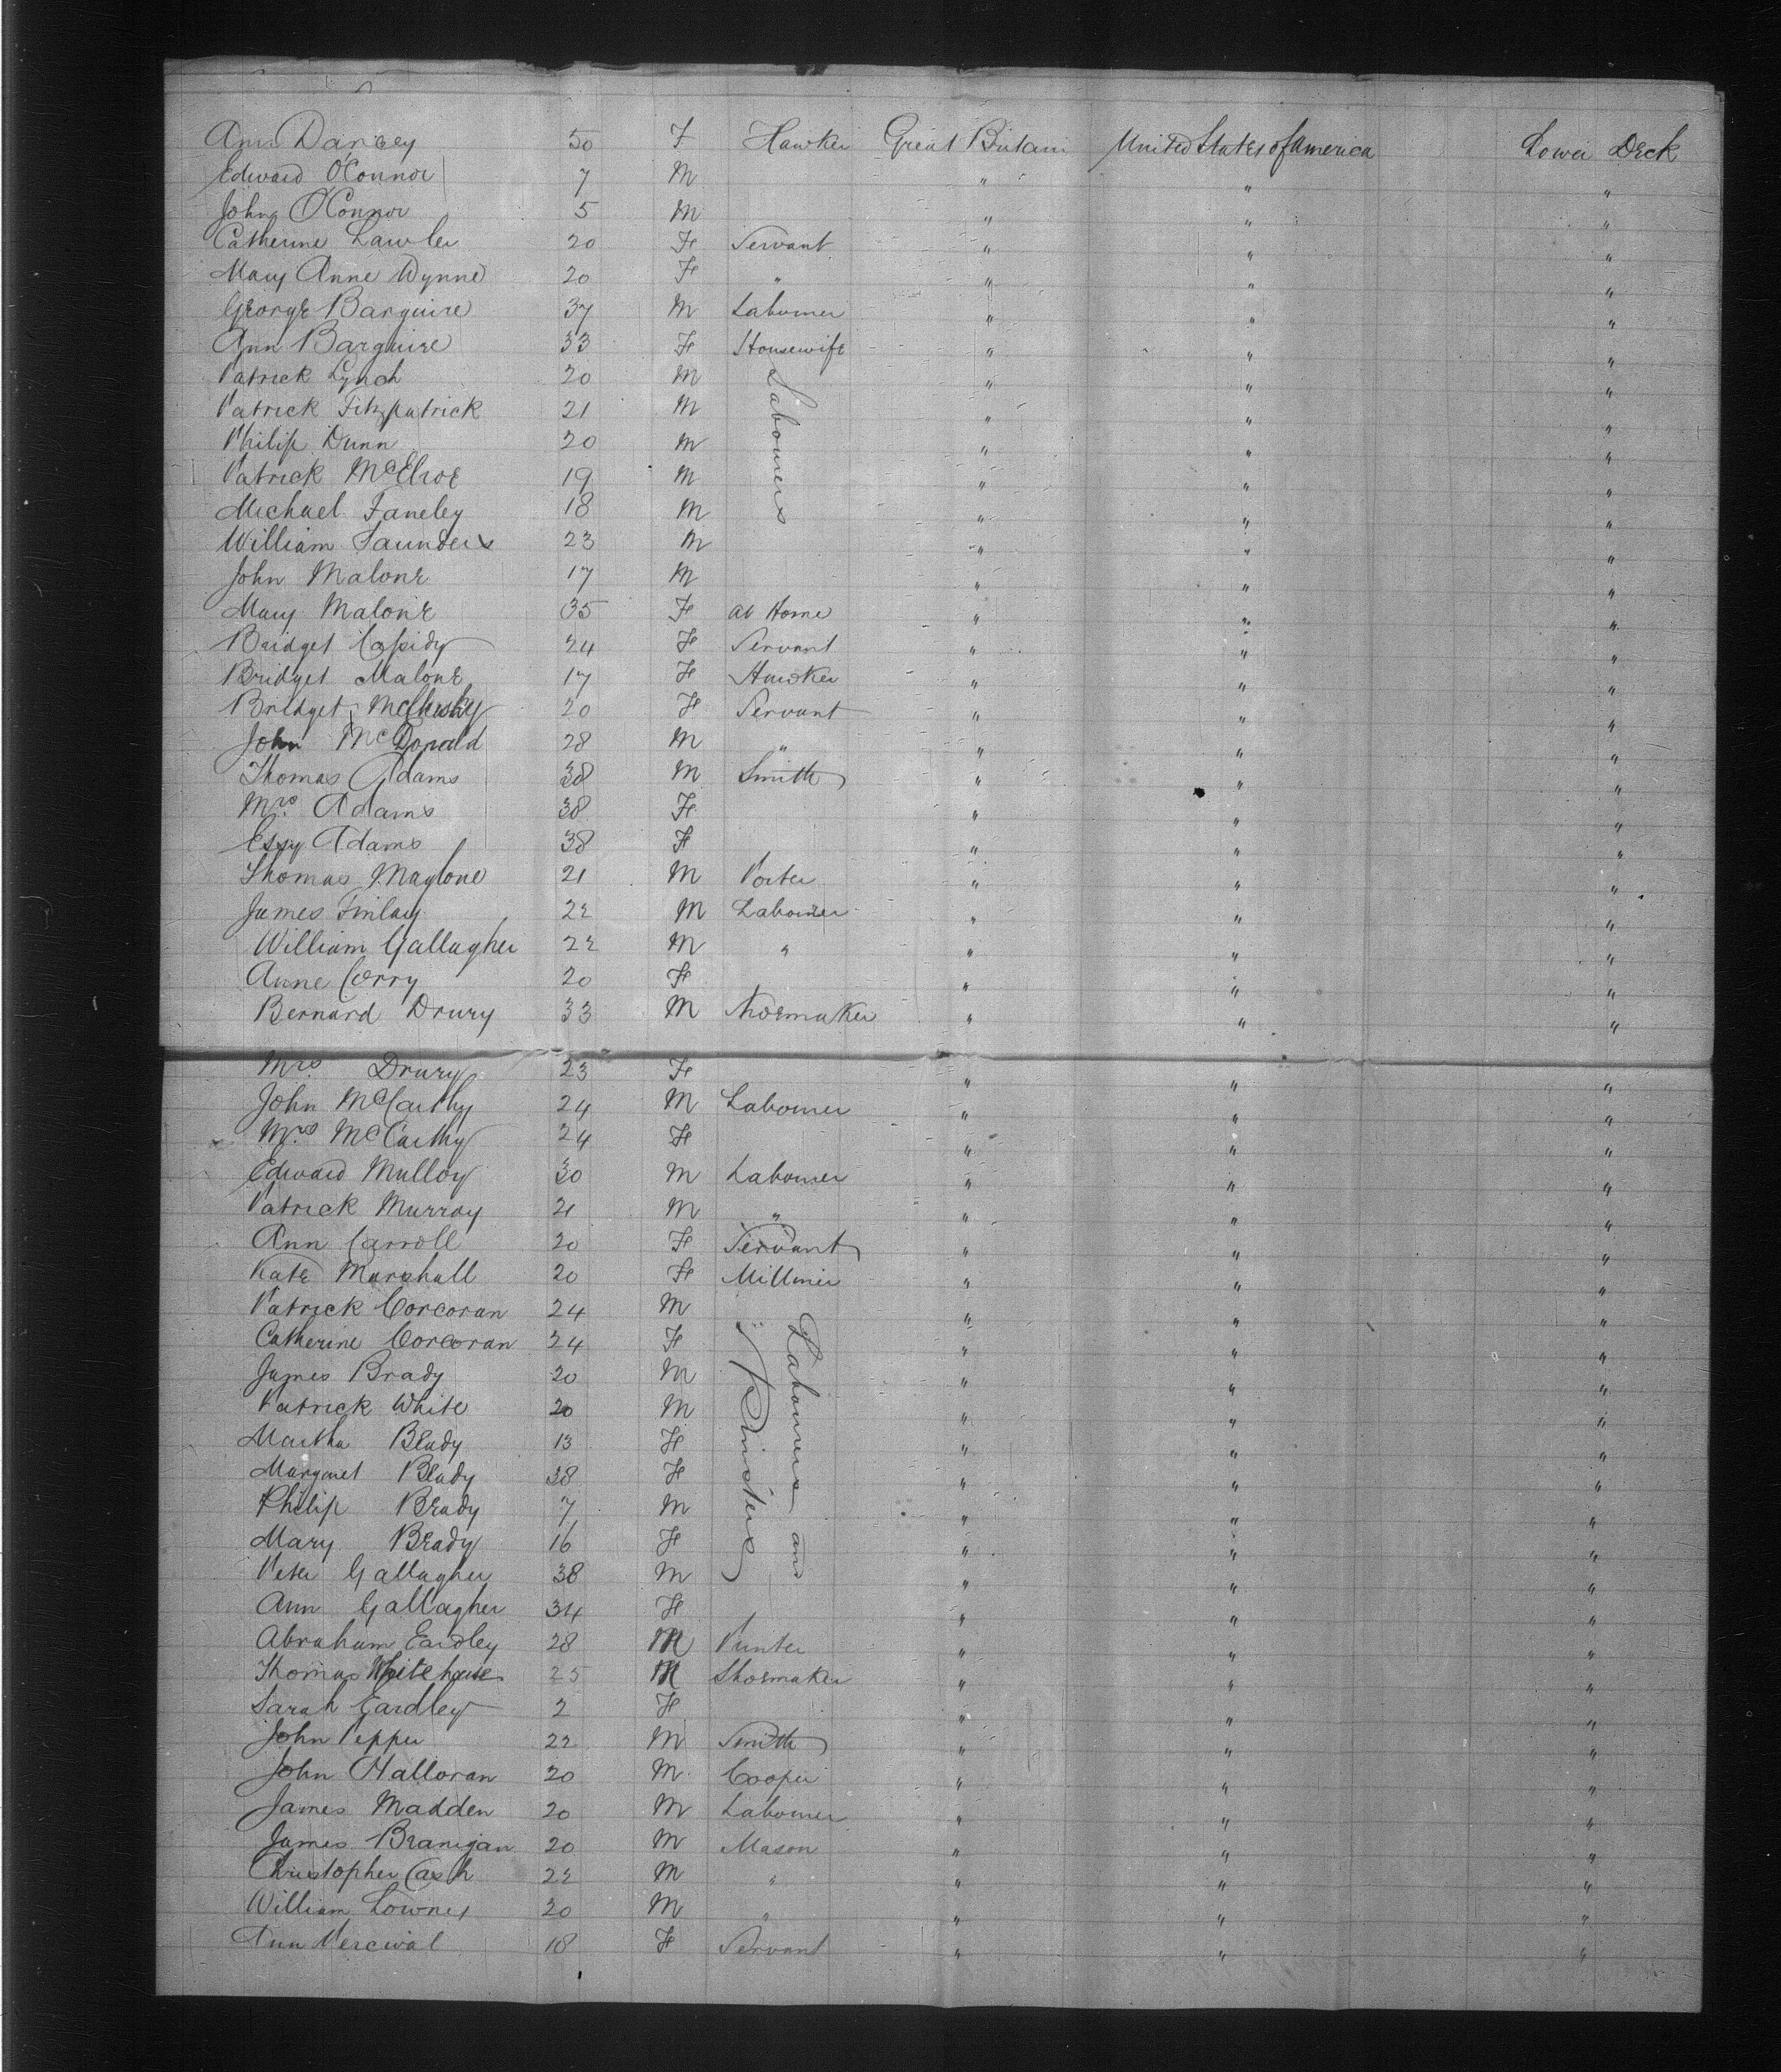 Ann Darcey 50 F Hawker Great Britain United States of America Lower Deck
Edward O'Connor 7 M " " "
John O'Connor 5 M " " "
Catherine Lawler 20 F Servant " " "
Mary Anne Wynne 20 F " " " "
George Barguire 37 M Labourer " " "
Ann Barguire 33 F Housewife " " "
Patrick Lynch 20 M Labourers " " "
Patrick Fitzpatrick 21 M " " "
Philip Dunn 20 M " " "
Patrick McElroe 19 M " " "
Michael Faneley 18 M " " "
William Saunders 23 M " " "
John Malone 17 M " " "
Mary Malone 35 F at Home " " "
Bridget Cassidy 24 F Servant " " "
Bridget Malone 17 F Hawker " " "
Bridget McClusky 20 F Servant " " "
John McDonald 28 M " " " "
Thomas Adams 38 M Smith " " "
Mrs. Adams 38 F " " "
Essy Adams 38 F " " "
Thomas Maglone 21 M Porter " " "
James Finlay 22 M Labourer " " "
William Gallagher 22 M " " " "
Anne Corry 20 F " " "
Bernard Drury 33 M Shoemaker " " "
Mrs. Drury 23 F " " "
John McCarthy 24 M Labourer " " "
Mrs McCarthy 24 F " " "
Edward Mulloy 30 M Labourer " " "
Patrick Murray 21 M " " " "
Ann Carroll 20 F Servant " " "
Kate Marshall 20 F Milliner " " "
Patrick Corcoran 24 M Labourers and Spinsters " " "
Catherine Corcoran 24 F " " "
James Brady 20 M " " "
Patrick White 20 M " " "
Martha Brady 13 F " " "
Margaret Brady 38 F " " "
Philip Brady 7 M " " "
Mary Brady 16 F " " "
Peter Gallagher 38 M " " "
Ann Gallagher 34 F " " "
Abraham Eardley 28 M Printer " " "
Thomas Whitehouse 25 M Shoemaker " " "
Sarah Eardley 2 F " " "
John Pepper 22 M Smith " " "
John Halloran 20 M Cooper " " "
James Madden 20 M Labourer " " "
James Branigan 20 M Mason " " "
Christopher Cash 22 M " " " "
William Lowney 20 M " " " "
Ann Percival 18 F Servant " " "